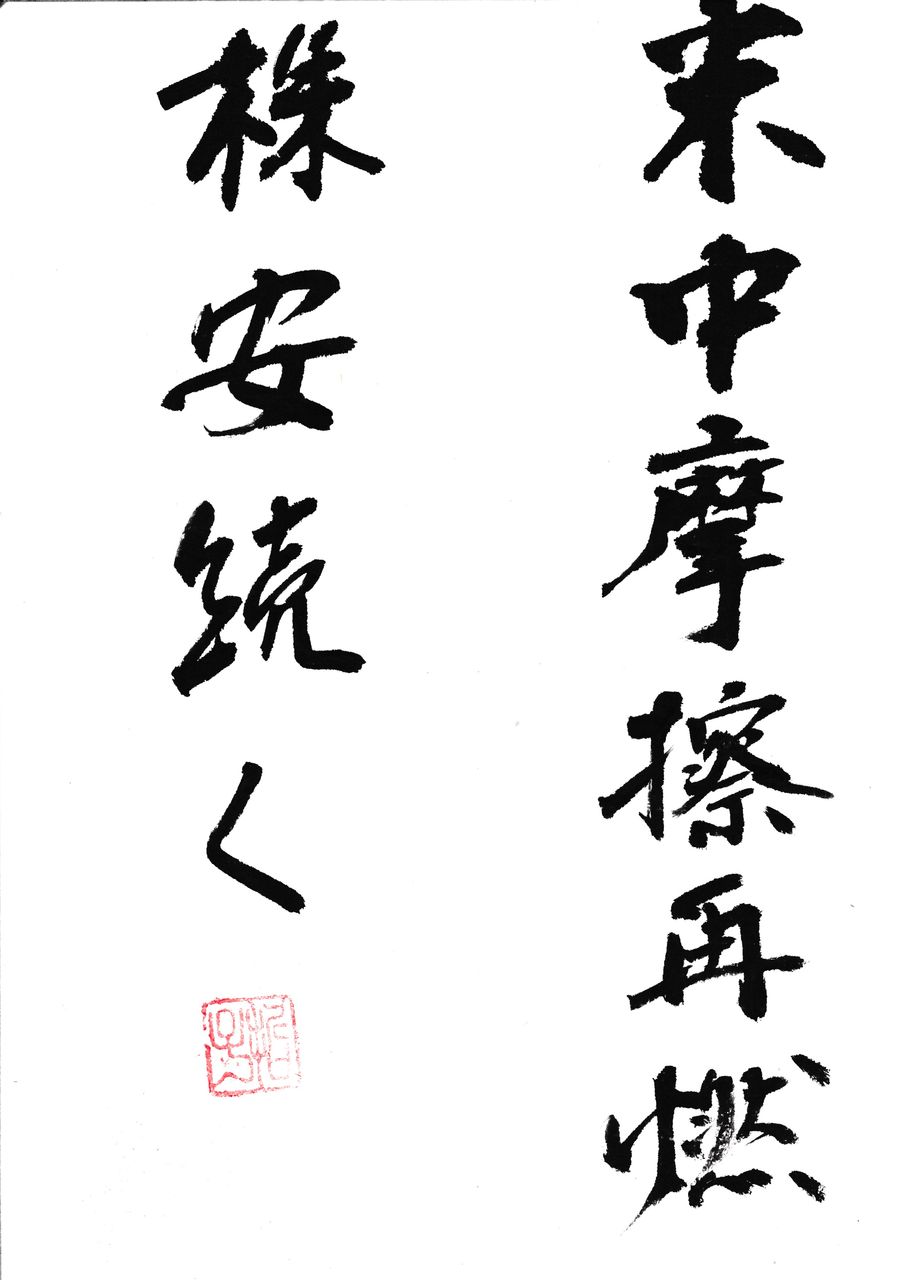 米中摩擦再燃
株安続く